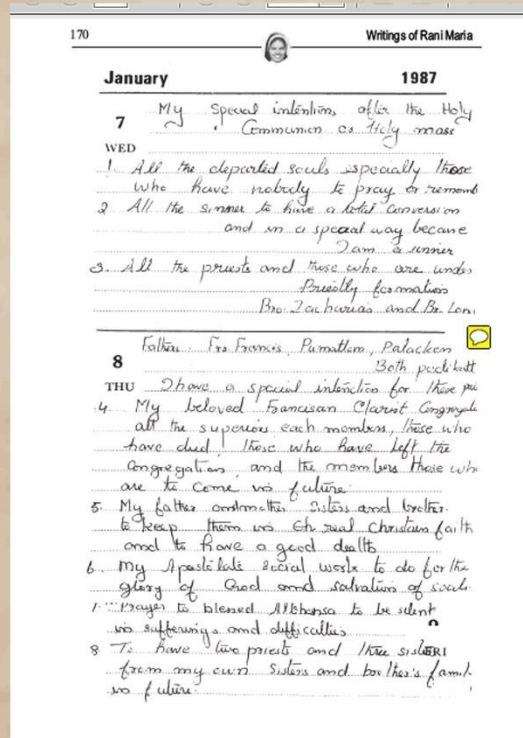 170
Writings of Rani Maria
January 1987
7 My Special intentions after the Holy
Communion or Holy mass
WED
1. All the departed souls especially those
who have nobody to pray or rememb
2 All the sinner to have a total conversion
and in a special way because
I am a sinner
3. All the priests and those who are under
Priestly formation
Bro. Zacharias and Br.
Frs. Francis,
8 Both
THU I have a special intention for these
4. My beloved Francisan Clarist
all the superiors each members, those who
have died those who have left the
Congregation and the members those wh
are to come in future
5. My father and mother Sisters and brother
to keep them in real Christain faith
and to have a good death
6. My Apostolate Social work to do for the
glory of God and salvation of souls
Prayer to blessed Alphonsa to be silent
in sufferings and difficulties
8 To have two priests and three sister
from my own Sisters and brother's famil
in future.